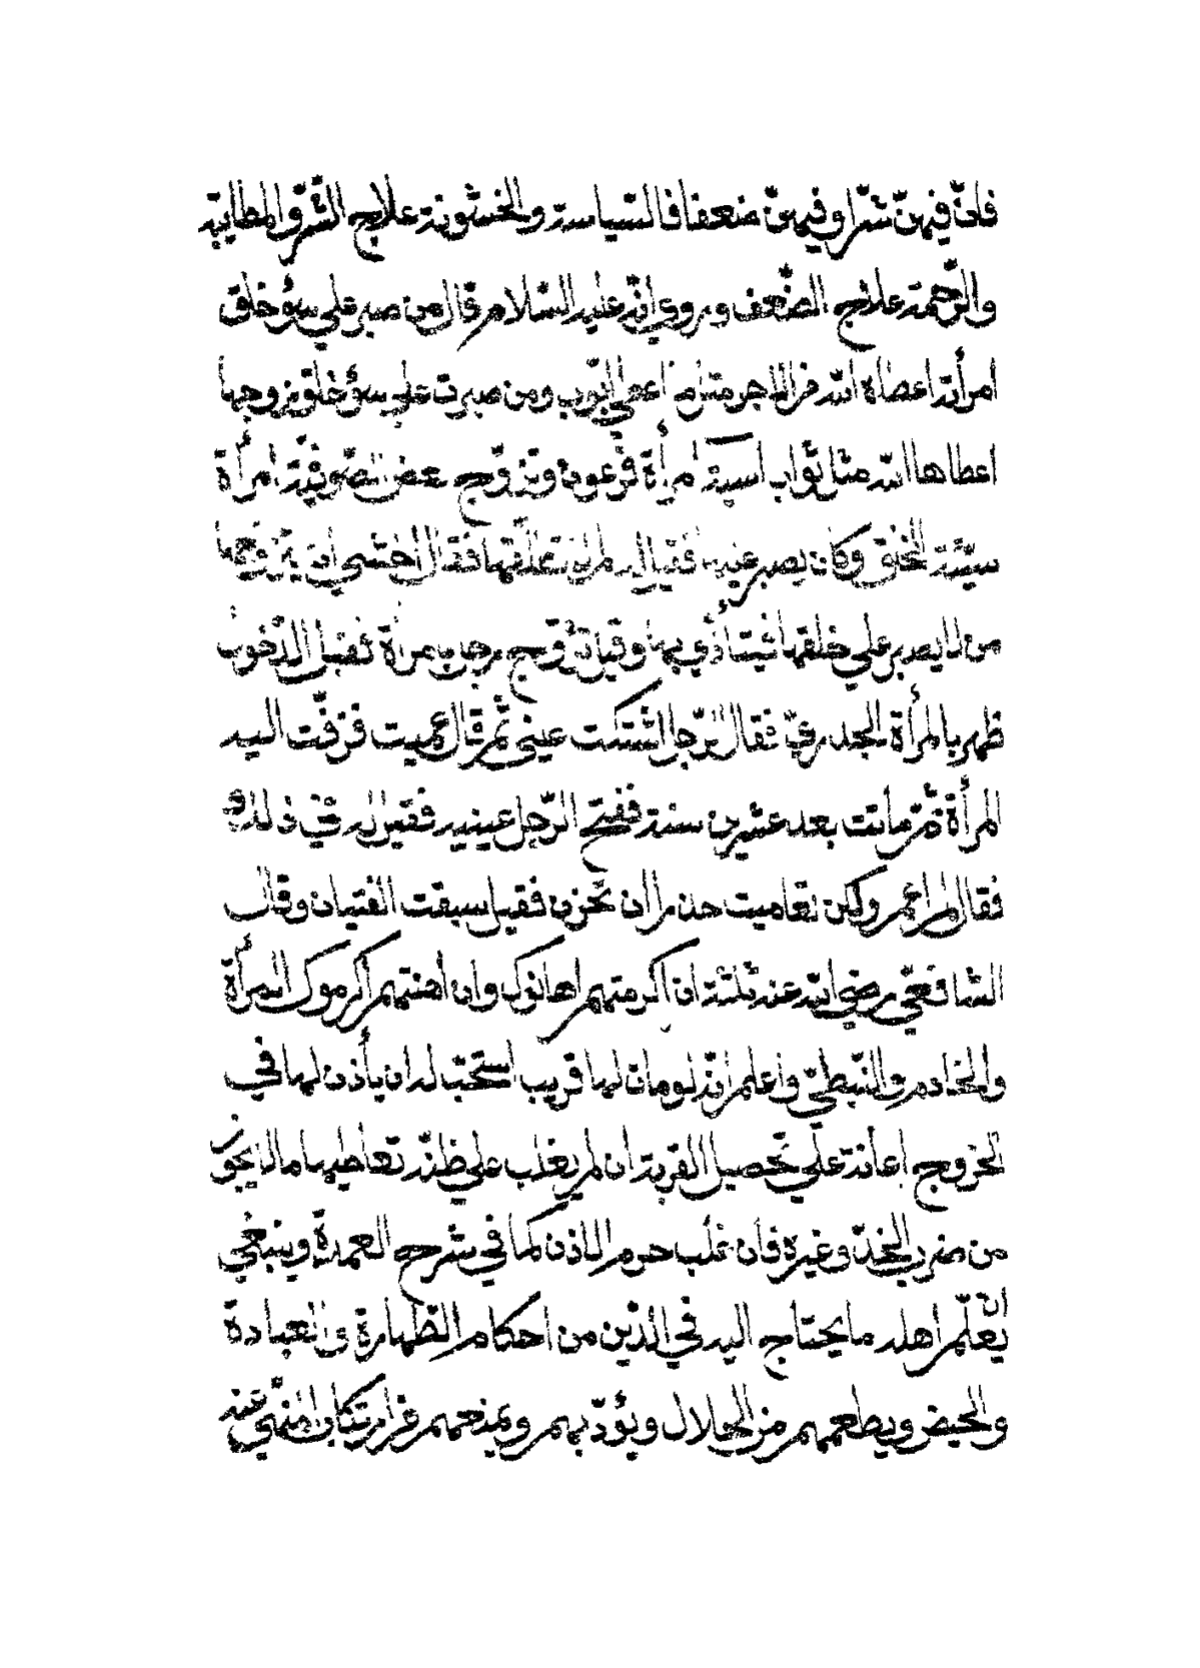 فانّ فيهنّ شرّا وفيهنّ ضعفا فالسّياسة والخشونة علاج الشّرّ والمطايبة
والرّحمة علاج الضّعف وروي انّه عليه السّلام قال من صبر علي سوء خلق
امرأته اعطاه الله من الاجر مثل ما اعطي ايّوب ومن صبرت علي سوء خلق زوجها
اعطاها الله مثل ثواب آسية امرأة فرعون وتزوّج بعض الصّوفيّة امرأة
سيّئة الخلق وكان يصبر عليها فقيل له لم لا تطلّقها فقال اخشي ان يتزوّجها
من لا يصبر علي خلقها فيتأذي بها وقيل تزوّج رجل بامرأة فقبل الدّخول
ظهر بالمرأة الجدريّ فقال الرّجل اشتكت عيني ثمّ قال عميت فزفّت اليه
المرأة ثمّ ماتت بعد عشرين سنة ففتح الرّجل عينيه فقيل له في ذلك
فقال لم اعم ولكن تعاميت حذرا ان تحزن فقيل سبقت الفتيان وقال
الشّافعيّ رضي الله عنه ثلثة ان اكرمتهم اهانوك وان اهنتهم اكرموك المرأة
والخادم والنّبطيّ واعلم انّه لو مات لها قريب استحبّ له ان يأذن لها في
الخروج اعانة علي تحصيل القربة ان لم يغلب علي ظنّه تعاطيها ما لا يجوز
من ضرب الخدّ وغيره فان غلب حرم الاذن كما في شرح العمدة وينبغي
ان يعلّم اهله ما يحتاج اليه في الدّين من احكام الطّهارة والعبادة
والحيض ويطعمهم من الحلال ويؤدّبهم ويمنعهم من ارتكاب المنهيّ عنه